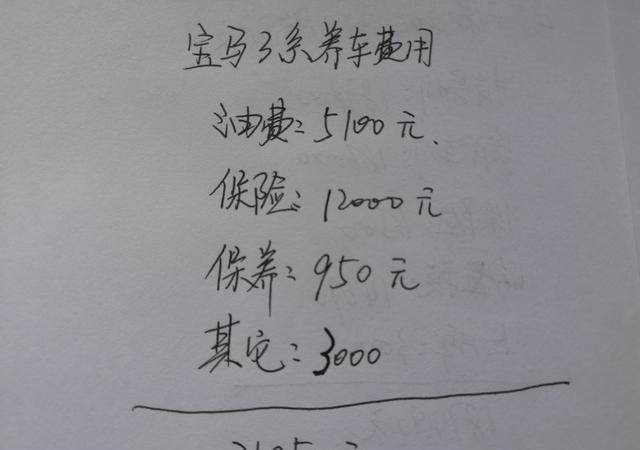 宝马3系养车费用
油费: 5100元、
保险: 12000元
保养: 950元
其它: 3000